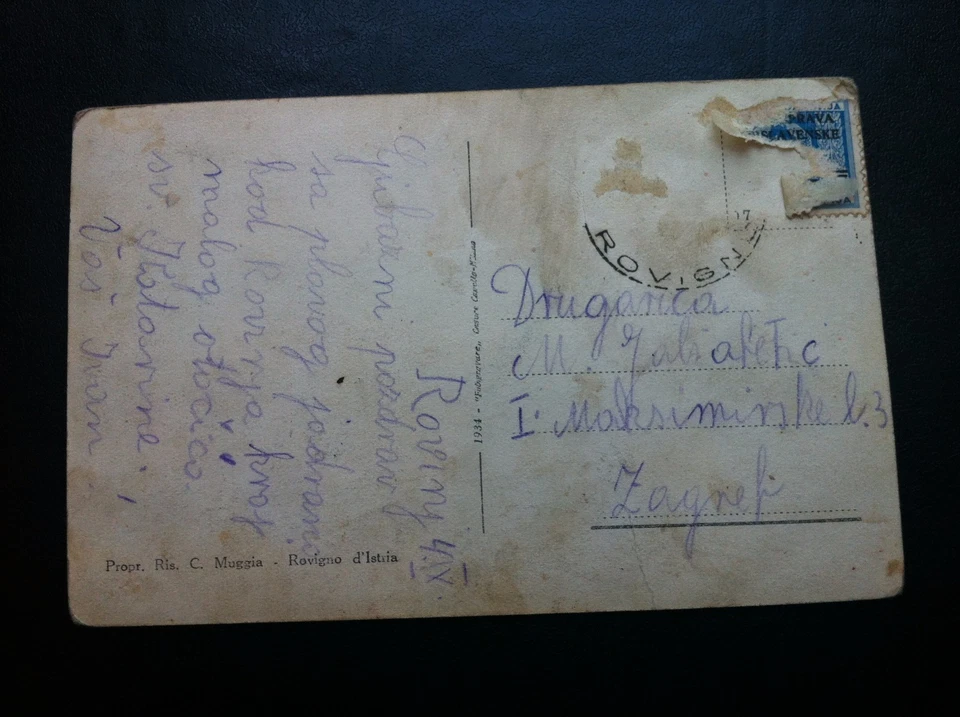 Rovinj 4.IX.
Ljubazni pozdrav
sa plavog jadrana
kod Rovinja kraj
malog otočića
sv. Katarine,
Vaš Ivan
1934 -
Propr. Ris. C. Muggia - Rovigno d'Istria
PRAVA
ROVIGN
Drugarica
M.
I. Maksimirske b. 3
Zagreb